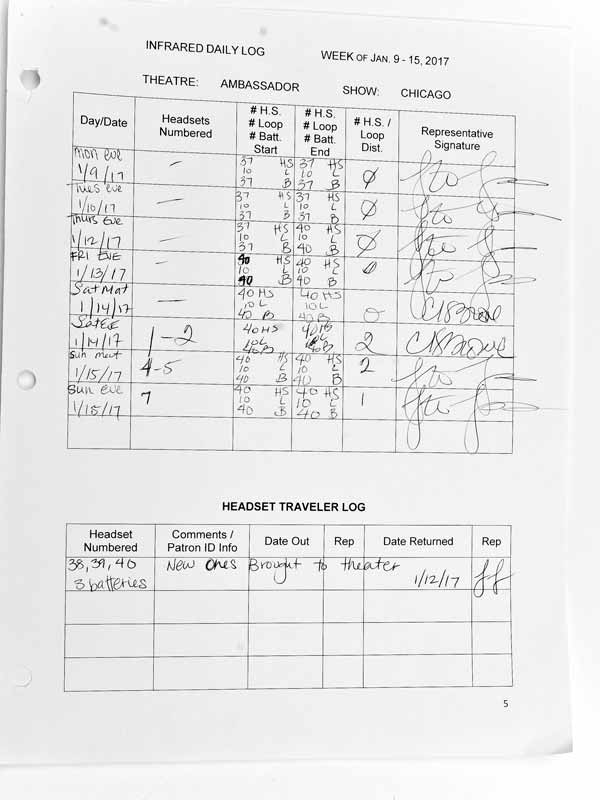 INFRARED DAILY LOG WEEK OF JAN. 9 - 15, 2017
THEATRE: AMBASSADOR SHOW: CHICAGO
Day/Date
Headsets
Numbered
# H.S.
# Loop
# Batt.
Start
# H.S.
# Loop
# Batt.
End
# H.S. /
Loop
Dist.
Representative
Signature
Mon eve
1/9/17
—
37 HS
10 L
37 B
37 HS
10 L
37 B
Ø
Tues eve
1/10/17
—
37 HS
10 L
37 B
37 HS
10 L
37 B
Ø
Thurs Eve
1/12/17
—
37 HS
10 L
37 B
40 HS
10 L
40 B
Ø
FRI EVE
1/13/17
—
40 HS
10 L
40 B
40 HS
10 L
40 B
Sat Mat
1/14/17
—
40 HS
10 L
40 B
40 HS
10 L
40 B
0
Sat Eve
1/14/17
1-2
40 HS
10L
40B
2
Sun mat
1/15/17
4-5
40 HS
10 L
40 B
40 HS
10 L
40 B
2
Sun eve
1/15/17
7
40 HS
10 L
40 B
40 HS
10 L
40 B
1
HEADSET TRAVELER LOG
Headset
Numbered
Comments /
Patron ID Info
Date Out
Rep
Date Returned
Rep
38, 39, 40
3 batteries
New Ones Brought to theater
1/12/17
5